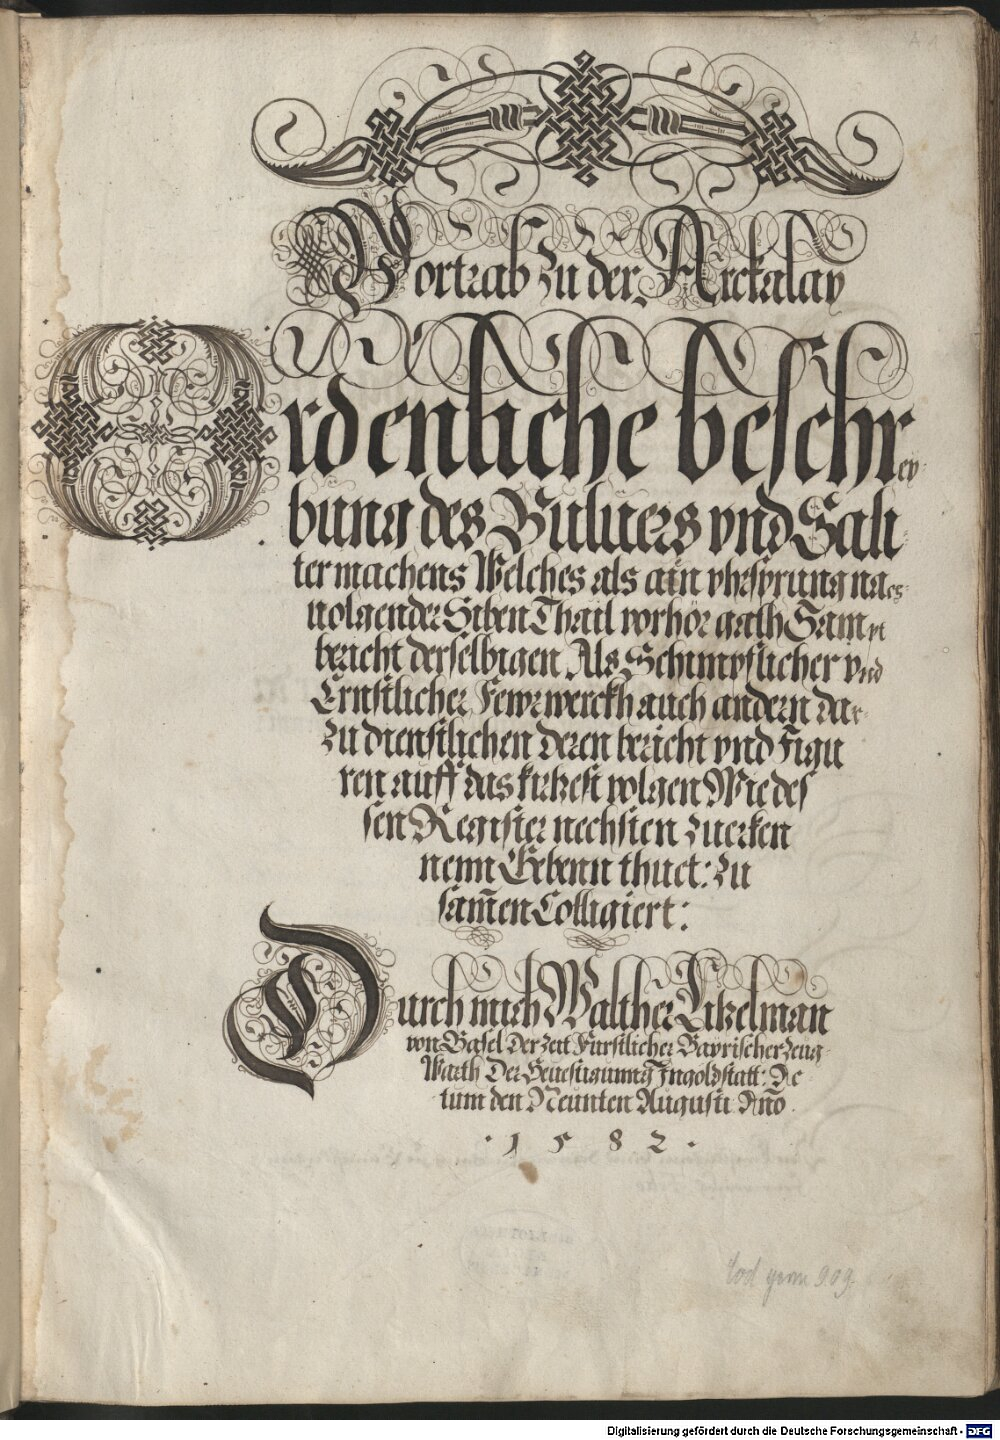 Vortrab zu der Arckalay
Ordenliche beschrey=
bung des Buluers vnd Sali
ter machens Welches als ain vhrsprung naes=
uolgender Siben Thail vorhör gath Sampt
bericht derselbigen Als Schimpflicher vnd
Ernstlicher Fewrwerckh auch andern dar=
zu dienstlichen deren bericht vnd Figu
ren auff das kirtzest volgen Wie des
sen Register nechsten zuerken
nenn Gebenn thuet: zu
sam̄en Colligiert:
Durch mich Walther Litzelman
von Basel Der Zeit Fürstlicher Bayrischer Zeug
Warth Der Veuestigunng Ingoldstatt: Ac
tum den Neunten Augusti An̄o
· 1 5 8 2 ·
Cod germ 909.
Digitalisierung gefördert durch die Deutsche Forschungsgemeinschaft - DFG